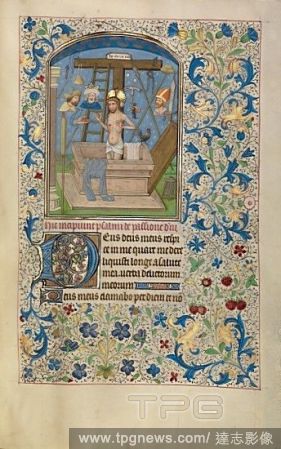 Hic incipiunt psalmi de passione dni
Deus deus meus respi
ce in me quare me dere
liquisti longe a salute
mea verba delictorum
meorum
Deus meus clamabo per diem et no
TPG
www.tpgnews.com/ 達志影像